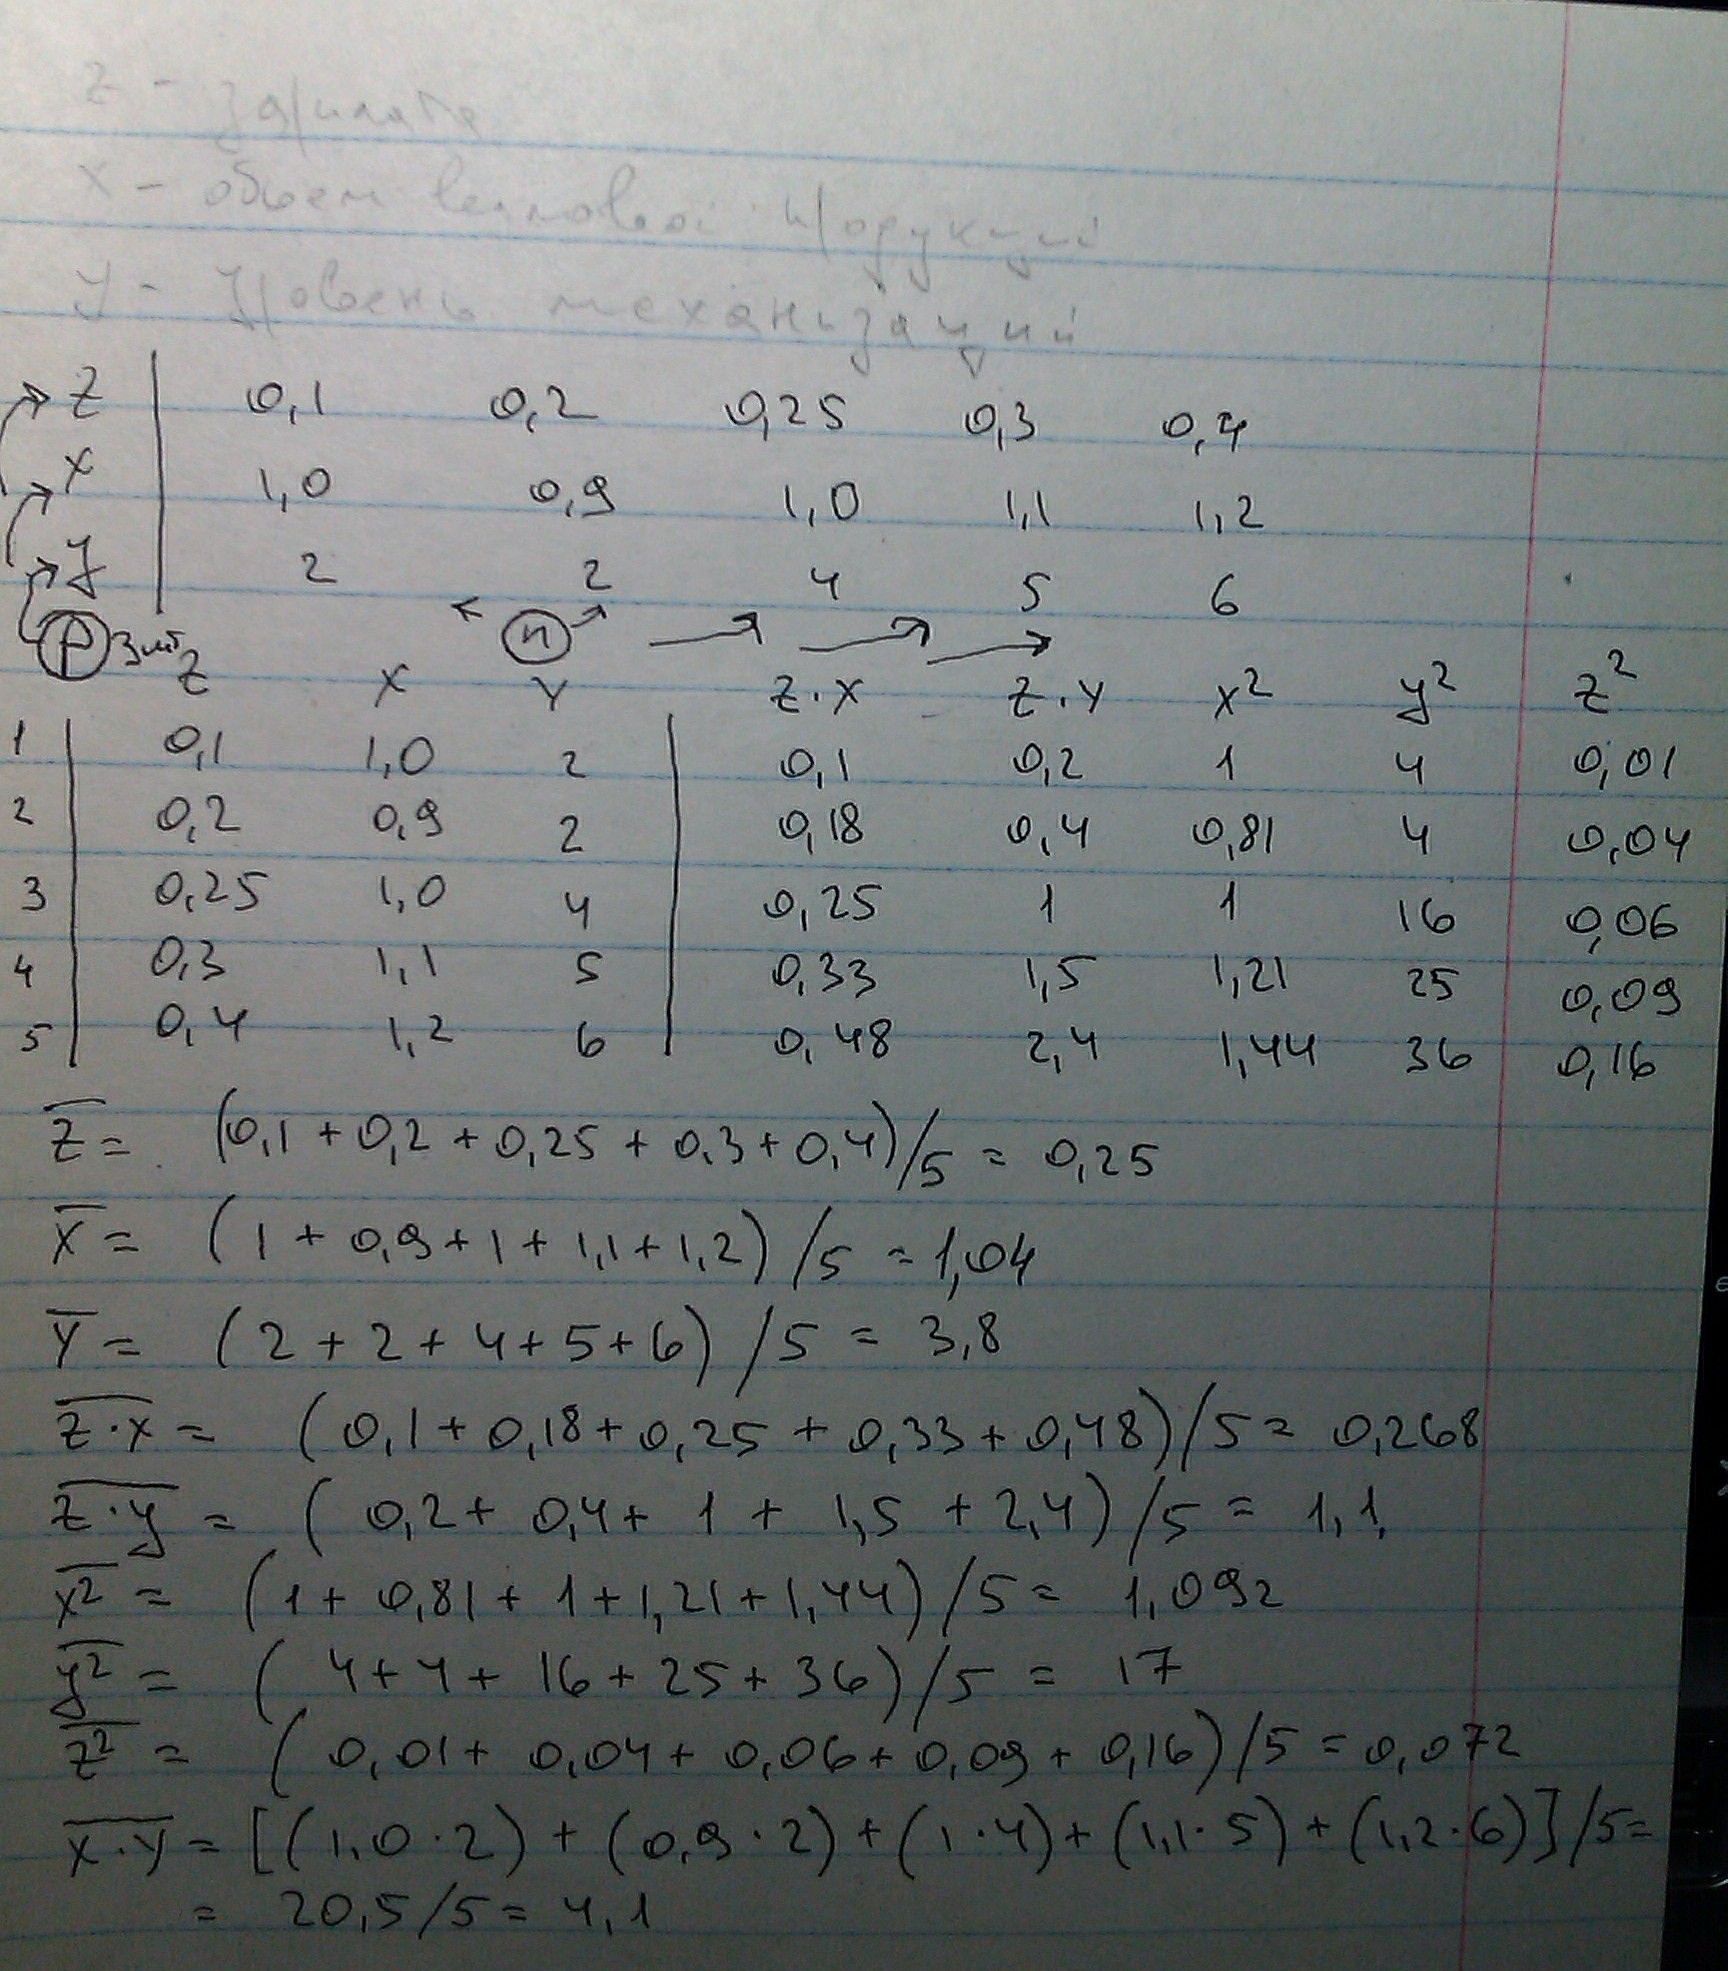 Z - зарплата
X - объем валовой продукций
У - Уровень механизаций
Z 0,1 0,2 0,25 0,3 0,4
X 1,0 0,9 1,0 1,1 1,2
y 2 2 4 5 6
P n
Z X Y Z·X Z·Y X² y² Z²
1 0,1 1,0 2 0,1 0,2 1 4 0,01
2 0,2 0,9 2 0,18 0,4 0,81 4 0,04
3 0,25 1,0 4 0,25 1 1 16 0,06
4 0,3 1,1 5 0,33 1,5 1,21 25 0,09
5 0,4 1,2 6 0,48 2,4 1,44 36 0,16
Z̅ = (0,1 + 0,2 + 0,25 + 0,3 + 0,4)/5 = 0,25
X̅ = (1 + 0,9 + 1 + 1,1 + 1,2)/5 = 1,04
Y̅ = (2 + 2 + 4 + 5 + 6)/5 = 3,8
Z̅·̅X̅ = (0,1 + 0,18 + 0,25 + 0,33 + 0,48)/5 = 0,268
Z̅·̅y̅ = (0,2 + 0,4 + 1 + 1,5 + 2,4)/5 = 1,1
x̅²̅ = (1 + 0,81 + 1 + 1,21 + 1,44)/5 = 1,092
y̅²̅ = (4 + 4 + 16 + 25 + 36)/5 = 17
z̅²̅ = (0,01 + 0,04 + 0,06 + 0,09 + 0,16)/5 = 0,072
X̅·̅Y̅ = [(1,0·2) + (0,9·2) + (1·4) + (1,1·5) + (1,2·6)]/5 =
= 20,5/5 = 4,1